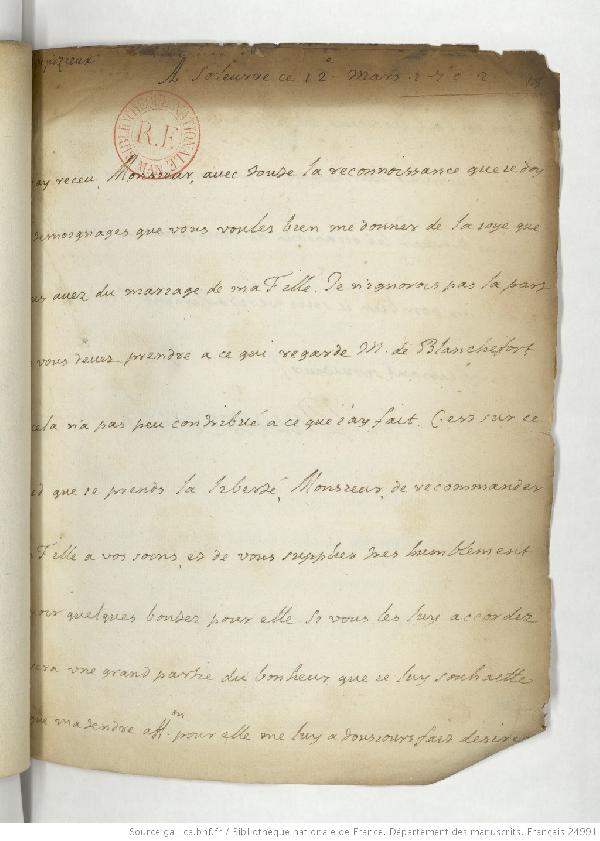 A Soleurre ce 12e Mars 1702
ay receu, Monsieur, avec toute la reconnoissance que ie doy
temoignages que vous voulés bien me donner de la ioye que
us avez du mariage de ma Fille. Je n'ignorois pas la part
vous devez prendre a ce qui regarde M. de Blanchefort
cela n'a pas peu contribué a ce que i'ay fait. C'est sur ce
ed que ie prends la liberté, Monsieur, de recommander
Fille a vos soins, et de vous supplier tres humblement
oir quelques bontez pour elle si vous les luy accordez
era une grand partie du bonheur que ie luy souhaitte
que ma tendre aff.on pour elle me luy a tousiours fait desire
BIBLIOTHEQUE NATIONALE MANUSCRITS
R.F
Source gallica.bnf.fr / Bibliothèque nationale de France. Département des manuscrits. Français 24991